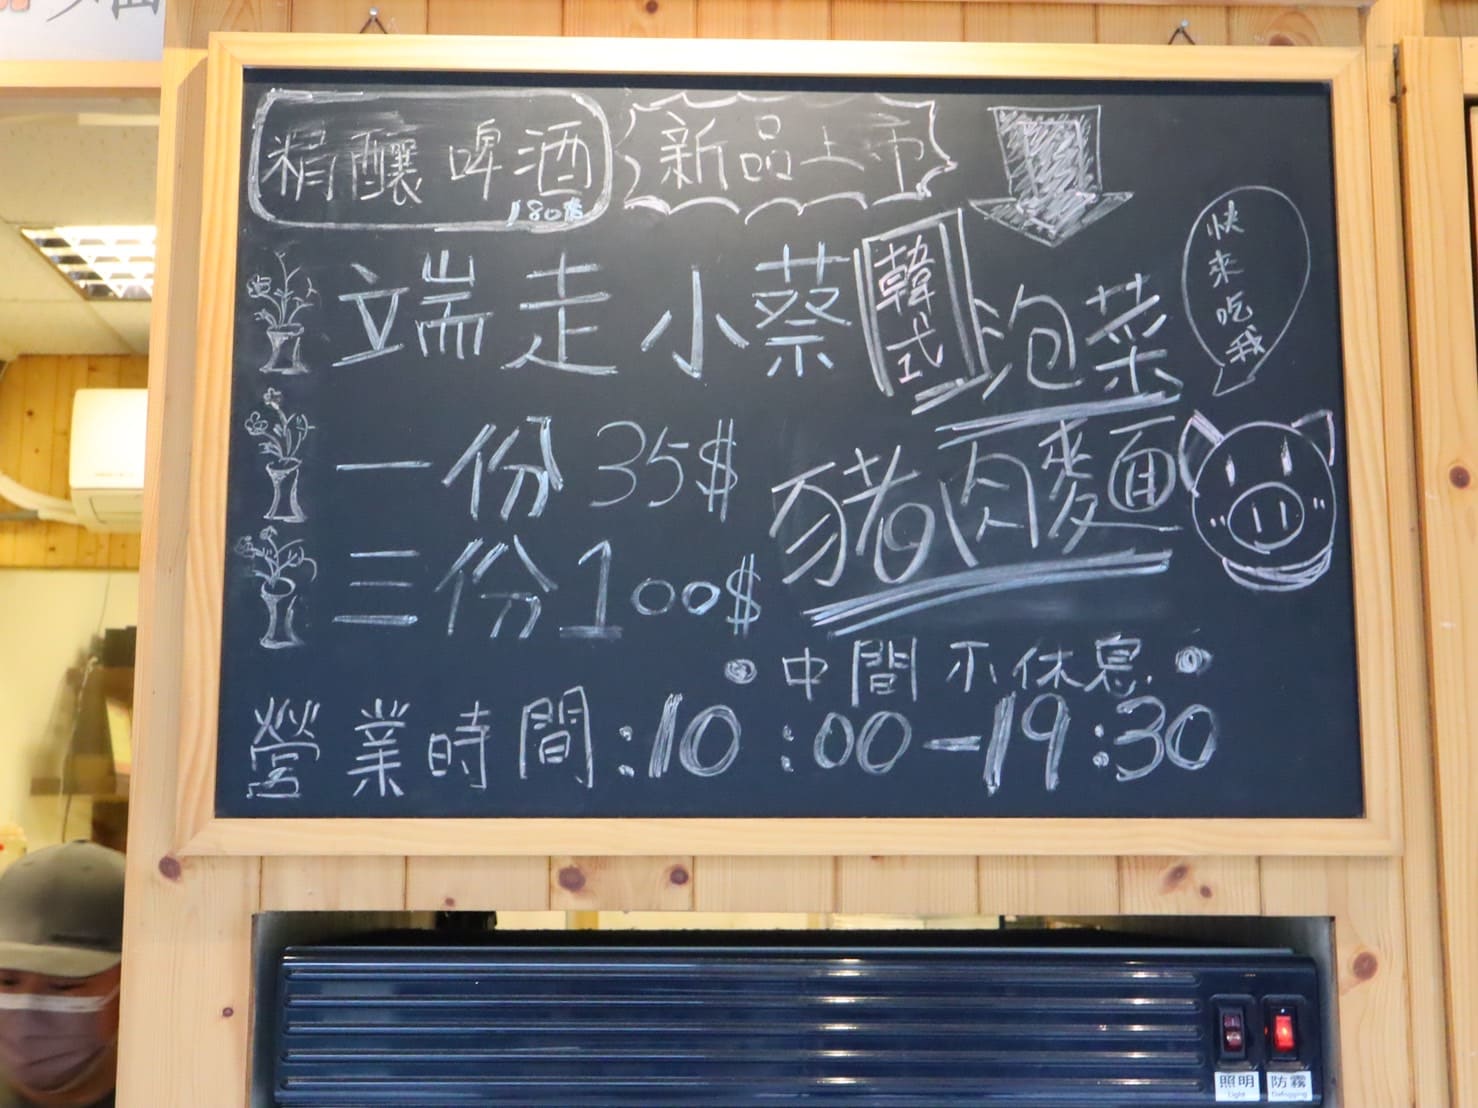 精釀啤酒
180元
新品上市
端走小蔡
一份35$
三份100$
韓式
泡菜
豬肉麵
快來吃我
中間不休息
營業時間:10:00-19:30
照明
Light
防霧
Defogging